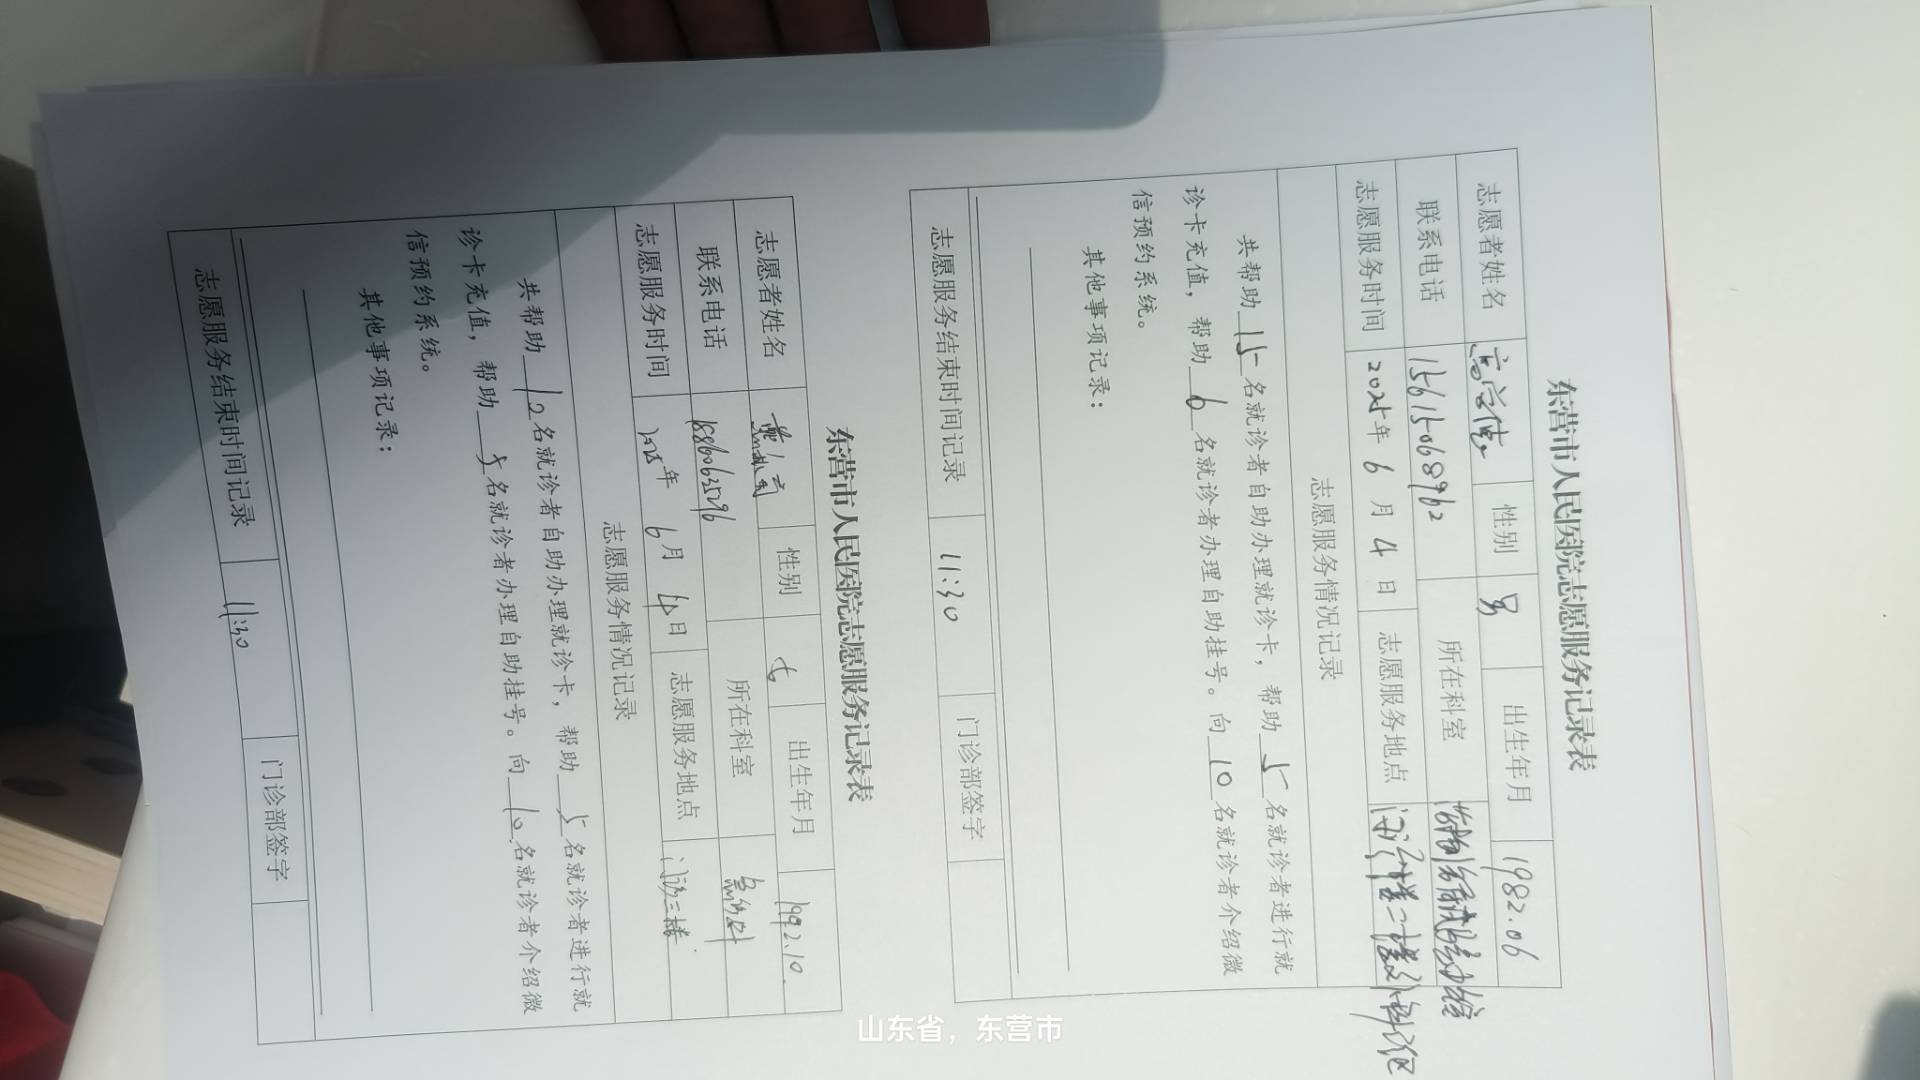 东营市人民医院志愿服务记录表
志愿者姓名 性别 男 出生年月 1982.06
联系电话 15615068962 所在科室
志愿服务时间 2025年 6 月 4 日 志愿服务地点
志愿服务情况记录
共帮助 15 名就诊者自助办理就诊卡，帮助 5 名就诊者进行就
诊卡充值，帮助 6 名就诊者办理自助挂号。向 10 名就诊者介绍微
信预约系统。
其他事项记录：
志愿服务结束时间记录 11:30 门诊部签字
东营市人民医院志愿服务记录表
志愿者姓名 性别 女 出生年月 1992.10.
联系电话 18860625296 所在科室 急诊科
志愿服务时间 2025年 6月 4日 志愿服务地点 门诊三楼
志愿服务情况记录
共帮助 12 名就诊者自助办理就诊卡，帮助 5 名就诊者进行就
诊卡充值，帮助 5 名就诊者办理自助挂号。向 10 名就诊者介绍微
信预约系统。
其他事项记录：
志愿服务结束时间记录 11:30 门诊部签字
山东省，东营市